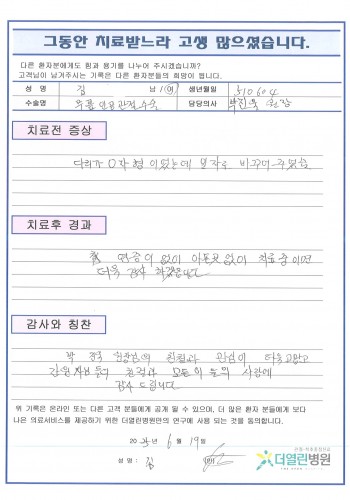 그동안 치료받느라 고생 많으셨습니다.
다른 환자분에게도 힘과 용기를 나누어 주시겠습니까?
고객님이 남겨주시는 기록은 다른 환자분들의 희망이 됩니다.
성 명 김 남 / 여 생년월일 510604
수술명 무릎 인공관절 수술 담당의사 원장
치료전 증상
다리가 O자형 이었는데 일자로 바꾸어 주었음
치료후 경과
없이 아픈곳 없이 치료 중이며
더욱 감사
감사와 칭찬
박 원장님의 친절과 관심이 더욱 고맙고
간호사분들의 친절과 모든이들의 사랑에
감사 드립니다
위 기록은 온라인 또는 다른 고객 분들에게 공개 될 수 있으며, 더 많은 환자 분들에게 보다
나은 의료서비스를 제공하기 위한 더열린병원만의 연구에 사용 되는 것을 동의합니다.
20 년 6 월 19 일
성 명 : 김
더열린병원